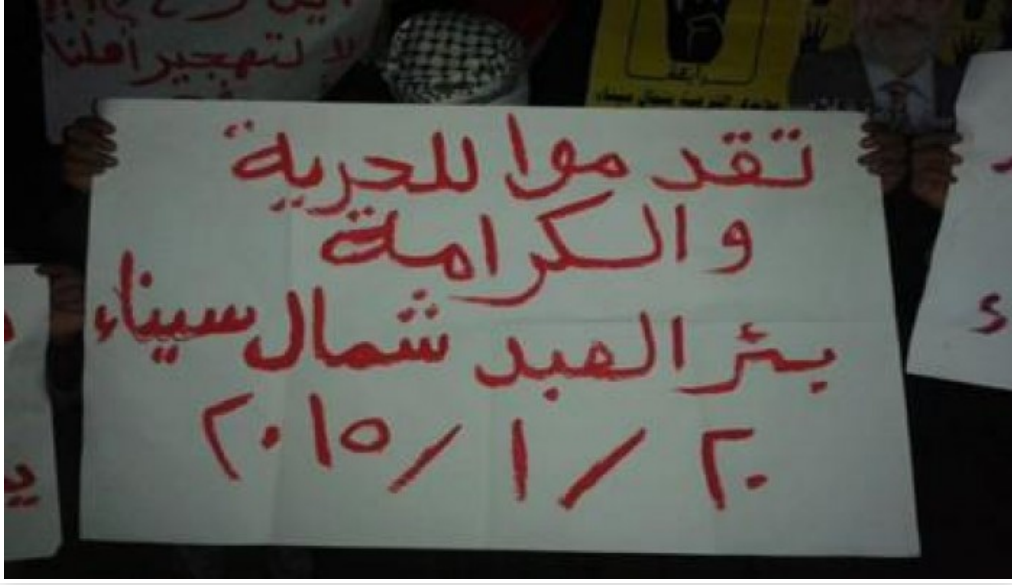 لا لتهجير أهلنا
رابعة
تقدموا للحرية
والكرامة
بئر العبد شمال سيناء
٢٠ / ١ / ٢٠١٥